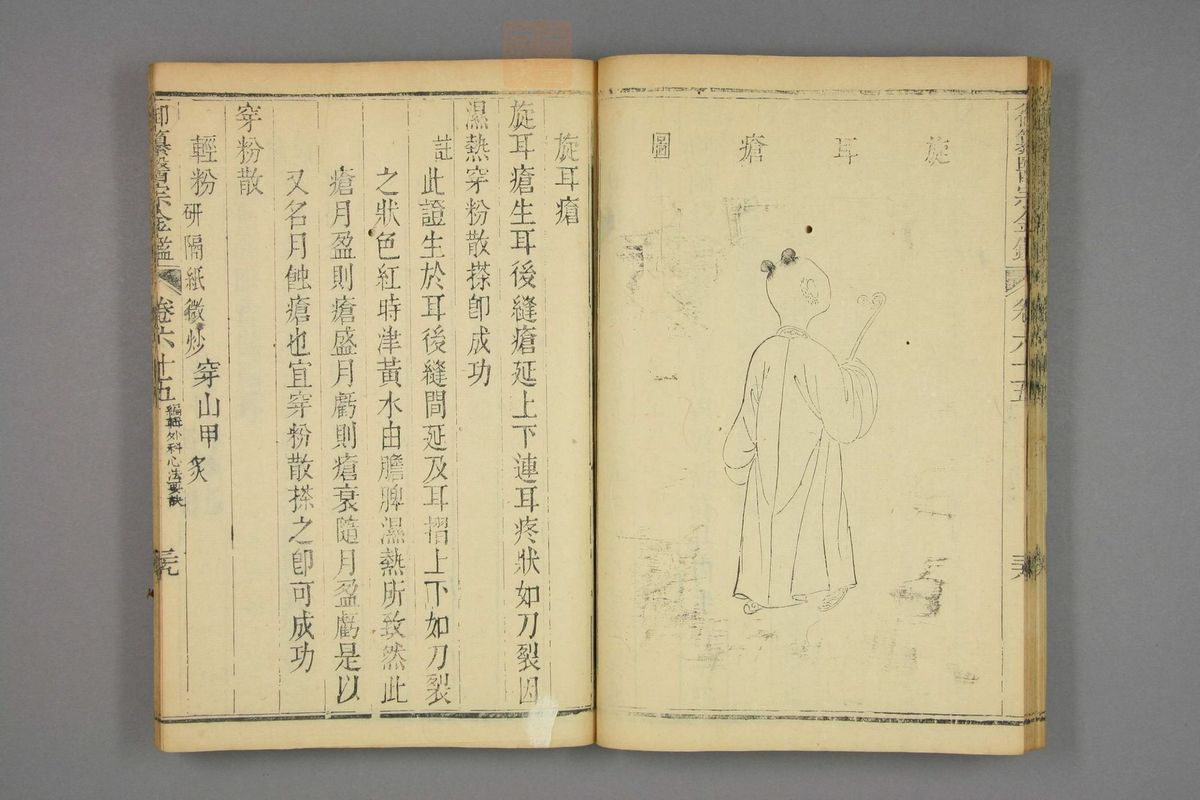 御纂醫宗金鑑
卷六十五
旋耳瘡圖
旋耳瘡
旋耳瘡生耳後縫瘡延上下連耳疼狀如刀裂因
濕熱穿粉散搽卽成功
註
此證生於耳後縫間延及耳摺上下如刀裂
之狀色紅時津黃水由膽脾濕熱所致然此
瘡月盈則瘡盛月虧則瘡衰隨月盈虧是以
又名月蝕瘡也宜穿粉散搽之卽可成功
穿粉散
輕粉研隔紙微炒 穿山甲炙
御纂醫宗金鑑 卷六十五 編輯外科心法要訣 三九